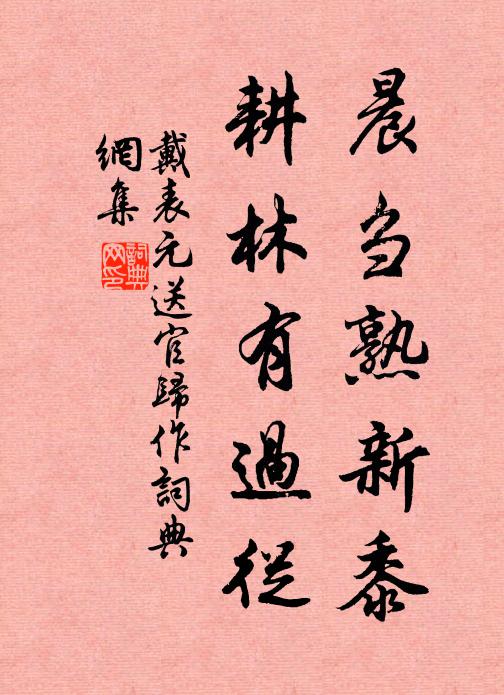 晨刍熟新黍
耕林有過從
戴表元送官歸作詞典
網集
詞典
网印